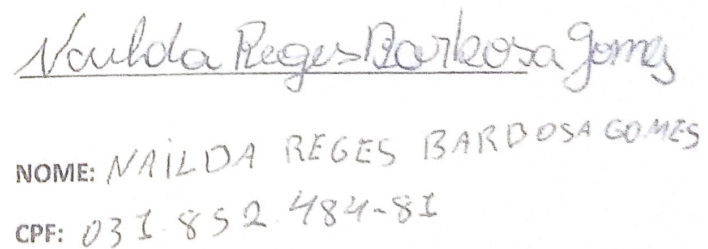 Nailda Reges Barbosa Gomes
NOME: NAILDA REGES BARBOSA GOMES
CPF: 031 852 484-81